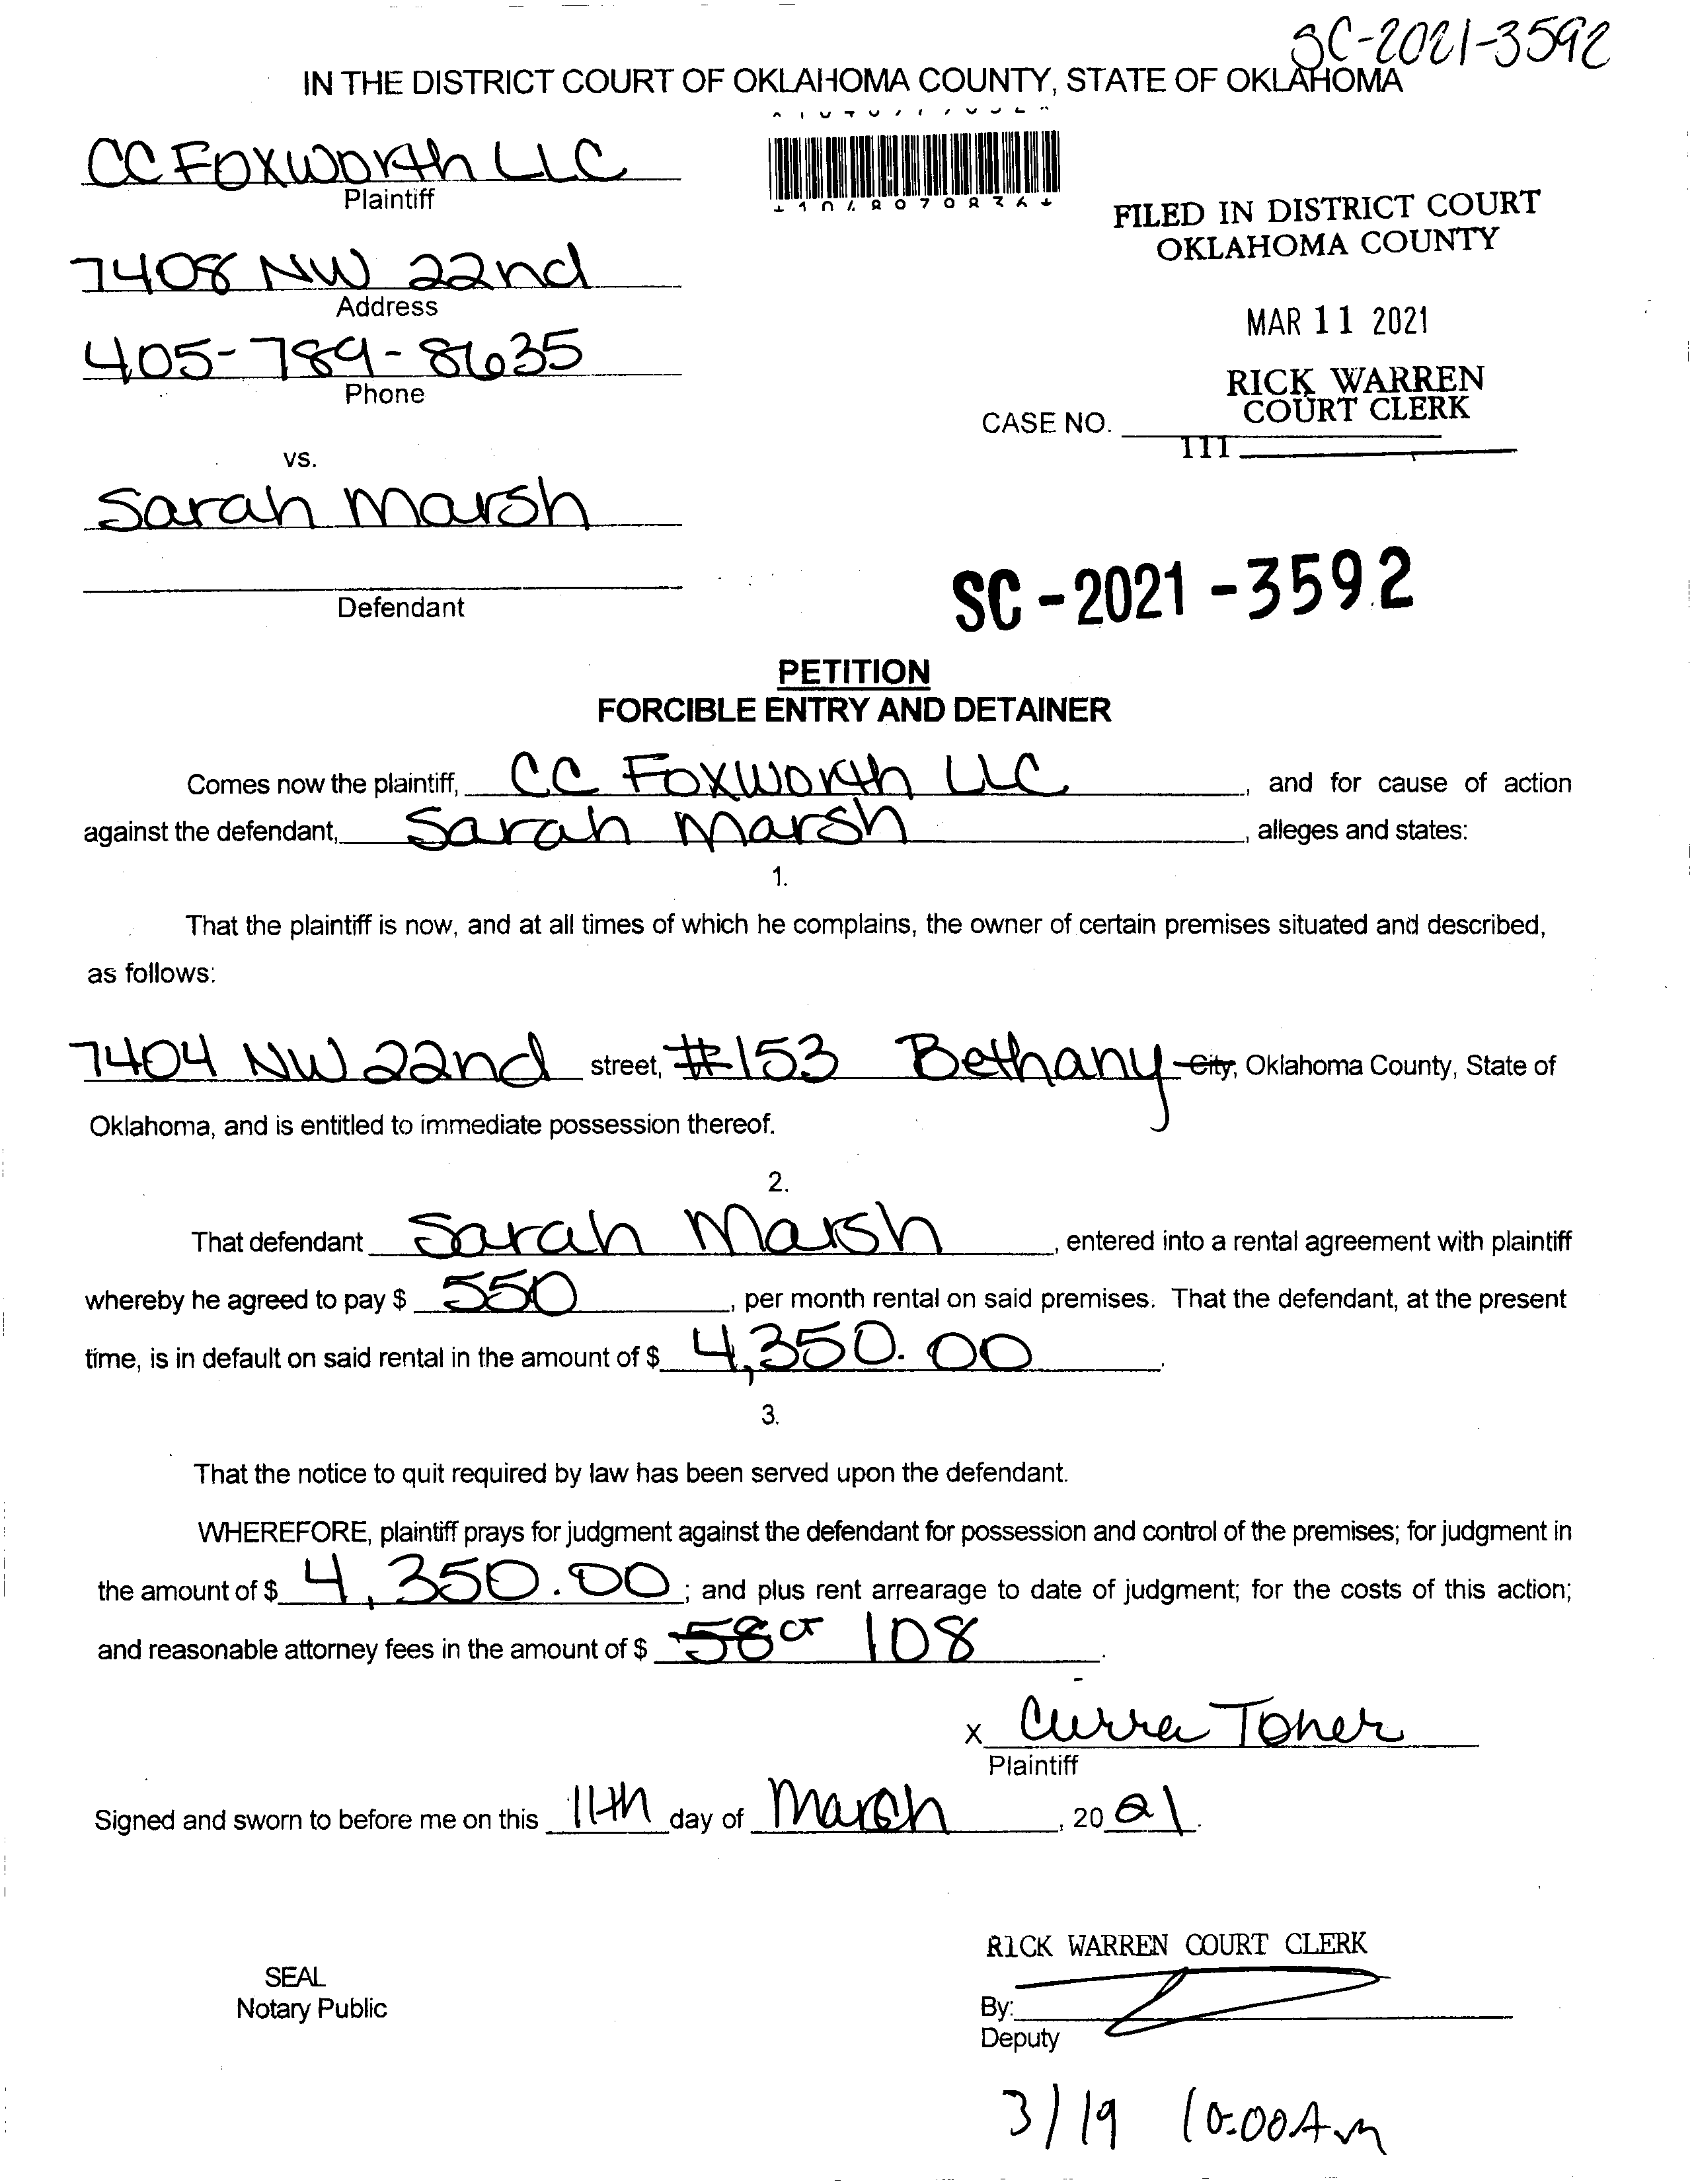 SC-2021-3592
IN THE DISTRICT COURT OF OKLAHOMA COUNTY, STATE OF OKLAHOMA
CC Foxworth LLC
Plaintiff
FILED IN DISTRICT COURT
OKLAHOMA COUNTY
7408 NW 22nd
Address
MAR 11 2021
405-789-8635
Phone
RICK WARREN
COURT CLERK
CASE NO.
111
vs.
Sarah Marsh
Defendant
SC-2021-3592
PETITION
FORCIBLE ENTRY AND DETAINER
Comes now the plaintiff, CC Foxworth LLC, and for cause of action
against the defendant, Sarah Marsh, alleges and states:
1.
That the plaintiff is now, and at all times of which he complains, the owner of certain premises situated and described,
as follows:
7404 NW 22nd street, #153 Bethany City, Oklahoma County, State of
Oklahoma, and is entitled to immediate possession thereof.
2.
That defendant Sarah Marsh, entered into a rental agreement with plaintiff
whereby he agreed to pay $ 550, per month rental on said premises. That the defendant, at the present
time, is in default on said rental in the amount of $ 4,350.00.
3.
That the notice to quit required by law has been served upon the defendant.
WHEREFORE, plaintiff prays for judgment against the defendant for possession and control of the premises; for judgment in
the amount of $ 4,350.00; and plus rent arrearage to date of judgment; for the costs of this action;
and reasonable attorney fees in the amount of $ 58 CT 108.
x Curra Toner
Plaintiff
Signed and sworn to before me on this 11th day of March, 2021.
RICK WARREN COURT CLERK
SEAL
Notary Public
By:
Deputy
3/19 10:00 Am